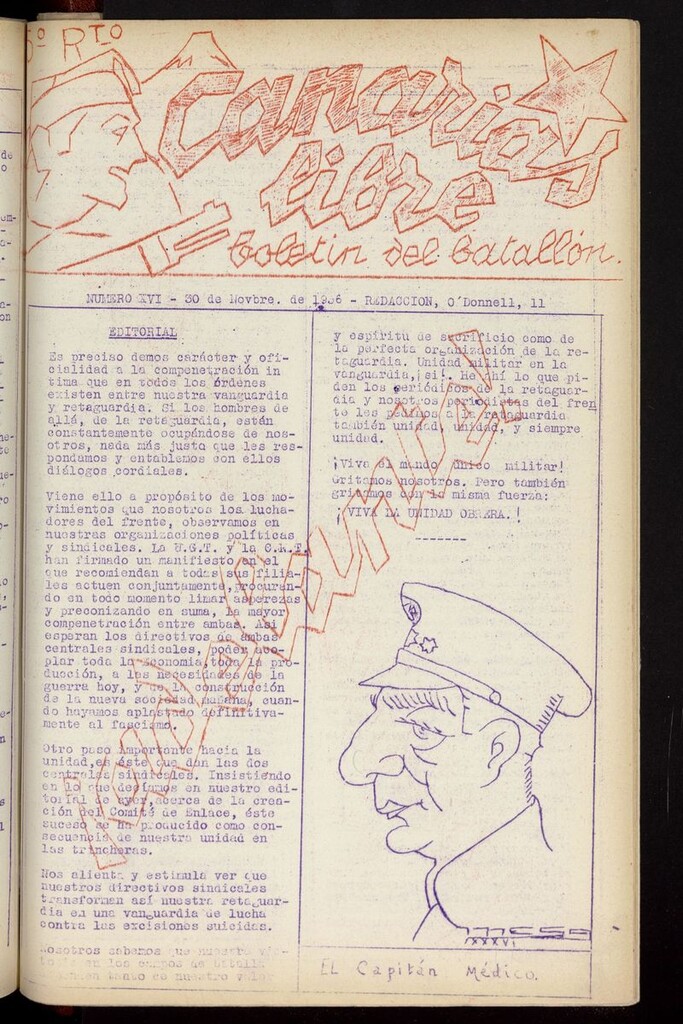 5º RTO
Canarias
libre
boletin del batallón.
NUMERO XVI - 30 de Novbre. de 1936 - REDACCION, O'Donnell, 11
EDITORIAL
Es preciso demos carácter y ofi-
cialidad a la compenetración in
tima que en todos los órdenes
existen entre nuestra vanguardia
y retaguardia. Si los hombres de
allá, de la retaguardia, están
constantemente ocupándose de nos-
otros, nada más justo que les res-
pondamos y entablemos con ellos
diálogos cordiales.
Viene ello a propósito de los mo-
vimientos que nosotros los lucha-
dores del frente, observamos en
nuestras organizaciones políticas
y sindicales. La U.G.T. y la C.N.T.
han firmado un manifiesto en el
que recomiendan a todas sus filia-
les actuen conjuntamente, procuran-
do en todo momento limar asperezas
y preconizando en suma, la mayor
compenetración entre ambas. Así
esperan los directivos de ambas
centrales sindicales, poder aco-
plar toda la economia, toda la pro-
ducción, a las necesidades de la
guerra hoy, y a la construcción
de la nueva sociedad mañana, cuan-
do hayamos aplastado definitiva-
mente al fascismo.
Otro paso importante hacia la
unidad, es éste que dan las dos
centrales sindicales. Insistiendo
en lo que decíamos en nuestro edi-
torial de ayer, acerca de la crea-
ción del Comité de Enlace, éste
suceso se ha producido como con-
secuencia de nuestra unidad en
las trincheras.
Nos alienta y estimula ver que
nuestros directivos sindicales
transforman así nuestra retaguar-
dia en una vanguardia de lucha
contra las excisiones suicidas.
Nosotros sabemos que nuestra
en los campos de batalla
tanto de nuestro valor
y espíritu de sacrificio como de
la perfecta organización de la re-
taguardia. Unidad militar en la
vanguardia, ¡sí!. He ahí lo que pi-
den los periódicos de la retaguar-
dia y nosotros periodistas del fren
te les pedimos a la retaguardia
también unidad, unidad, y siempre
unidad.
¡Viva el mando único militar!
Gritamos nosotros. Pero también
gritamos con la misma fuerza:
¡VIVA LA UNIDAD OBRERA.!
-------
MESA
XXXVI
EL Capitán Médico.